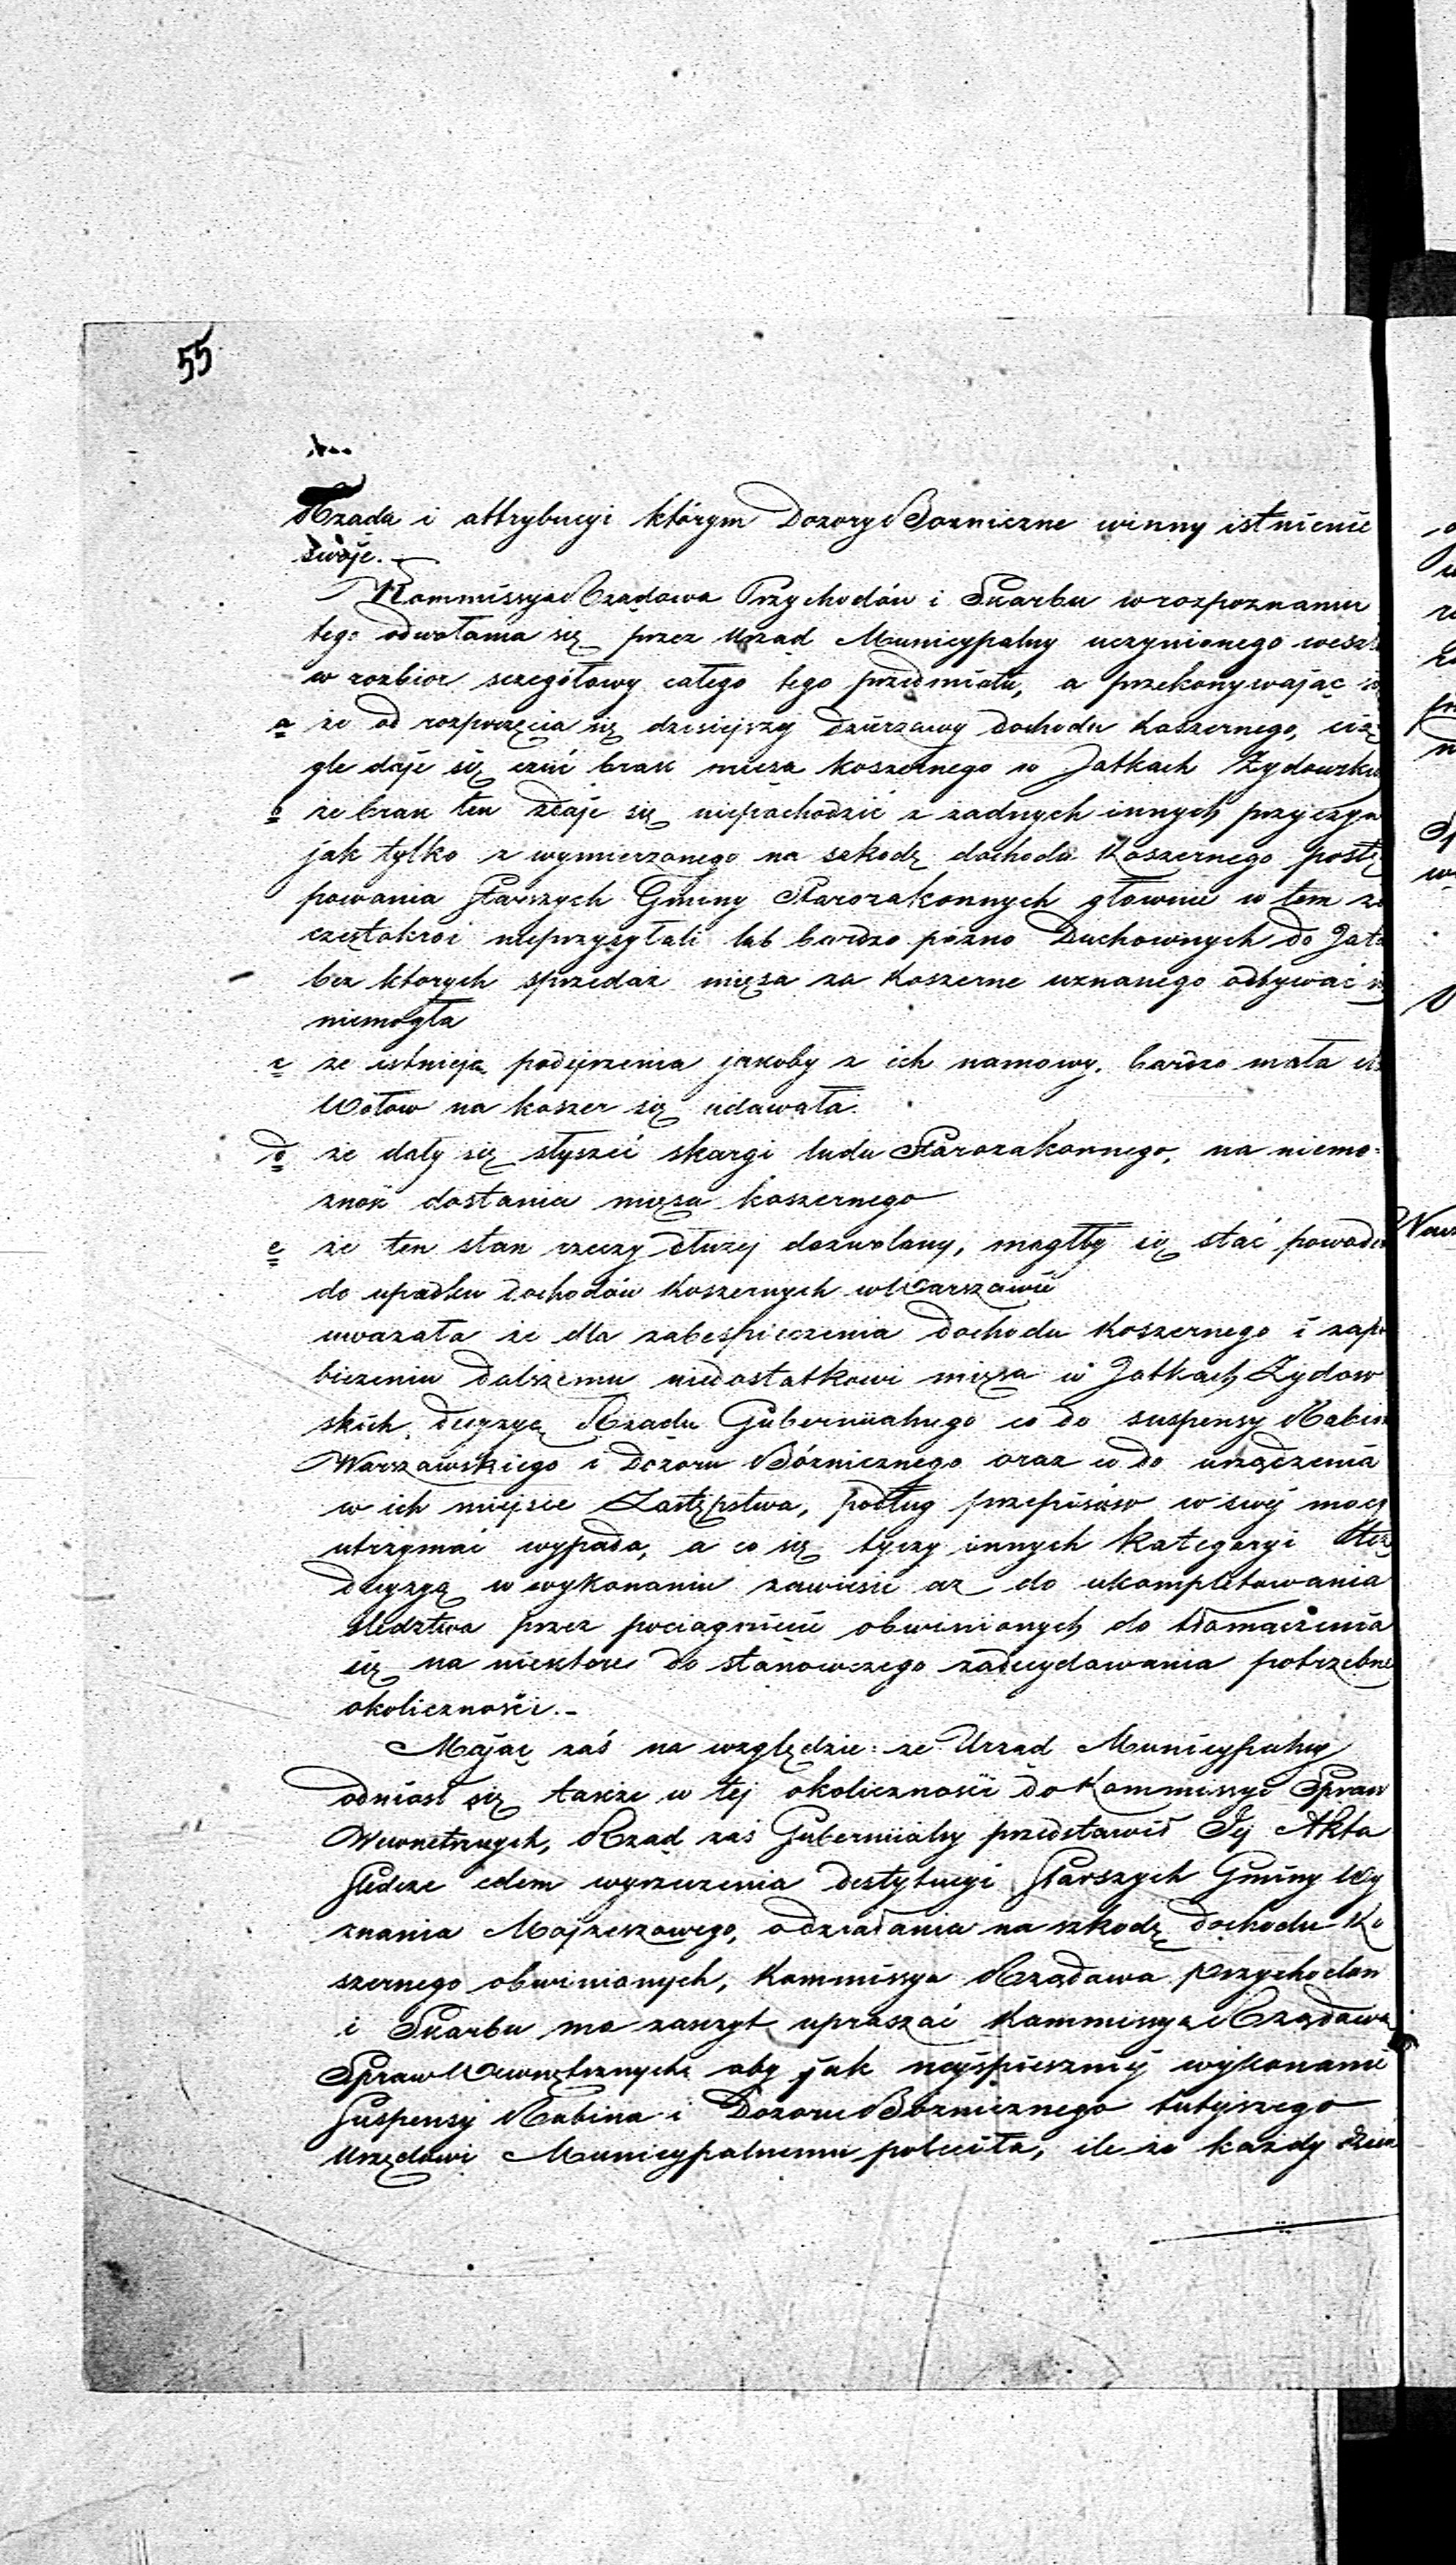 55
Rządu i attrybucyi którym Dozory Bożniczne winny istnienie
swoje.–
Kommissya Rządowa Przychodów i Skarbu w rozpoznaniu
tego odwołania się przez Urząd Municypalny uczynionego weszła
w rozbior sczegółowy całego tego przedmiotu, a przekonywając się
a że od rozpoczęcia się dzisiejszej Dzierzawy dochodu koszernego, cią
gle daje się czuć brak mięsa koszernego w Jatkach Żydowskich
b że brak ten zdaje się niepochodzić z żadnych innych przyczyn
jak tylko z wymierzonego na szkodę dochodu Koszernego postę
powania Starszych Gminy Starozakonnych głownie w tem że
częstokroć nieprzysyłali lub bardzo pózno Duchownych do Jatek
bez ktorych sprzedaż mięsa za Koszerne uznanego odbywać się
niemogła
c że istnieją podejrzenia jakoby z ich namowy, bardzo mała
Wołow na koszer się udawała.
d że dały się słyszeć skargi ludu Starozakonnego, na niemo:
żność dostania mięsa koszernego
e że ten stan rzeczy dłużej dozwolony, mogłby się stać powodem
do upadku dochodów koszernych w Warszawie
uważała że dla zabespieczenia dochodu koszernego i zapo
bieżeniu dalszemu niedostatkowi mięsa w Jatkach Żydow
skich, decyzyą Rządu Gubernialnego co do suspensy Rabina
Warszawskiego i Dozoru Bóżnicznego oraz co do urządzenia
w ich miejsce Zastępstwa, podług przepisów w swej mocy
utrzymać wypada, a co się tyczy innych kategoryi też
decyzyą w wykonaniu zawiesić aż do ukompletowania
śledztwa przez pociągnięcie obwinionych do tłomaczenia
się na niektóre do stanowczego zadecydowania potrzebne
okoliczności.–
Mając zaś na względzie: że Urząd Municypalny
odniósł się także w tej okoliczności do Kommissyi Spraw
Wewnetrznych, Rząd zaś Gubernialny przedstawił Jej Akta
śledcze celem wyrzeczenia destytucyi Starszych Gminy Wy
znania Mojżeszowego, o działania na szkodę dochodu Ko
szernego obwinionych, Kommissya Rządowa Przychodow
i Skarbu ma zaszczyt upraszać Kommissyą Rządową
Spraw Wewnętrznych aby jak najspieszniej wykonanie
Suspensy Rabina i Dozoru Bożnicznego tutejszego
Urzędowi Municypalnemu poleciła, ile że każdy dzień